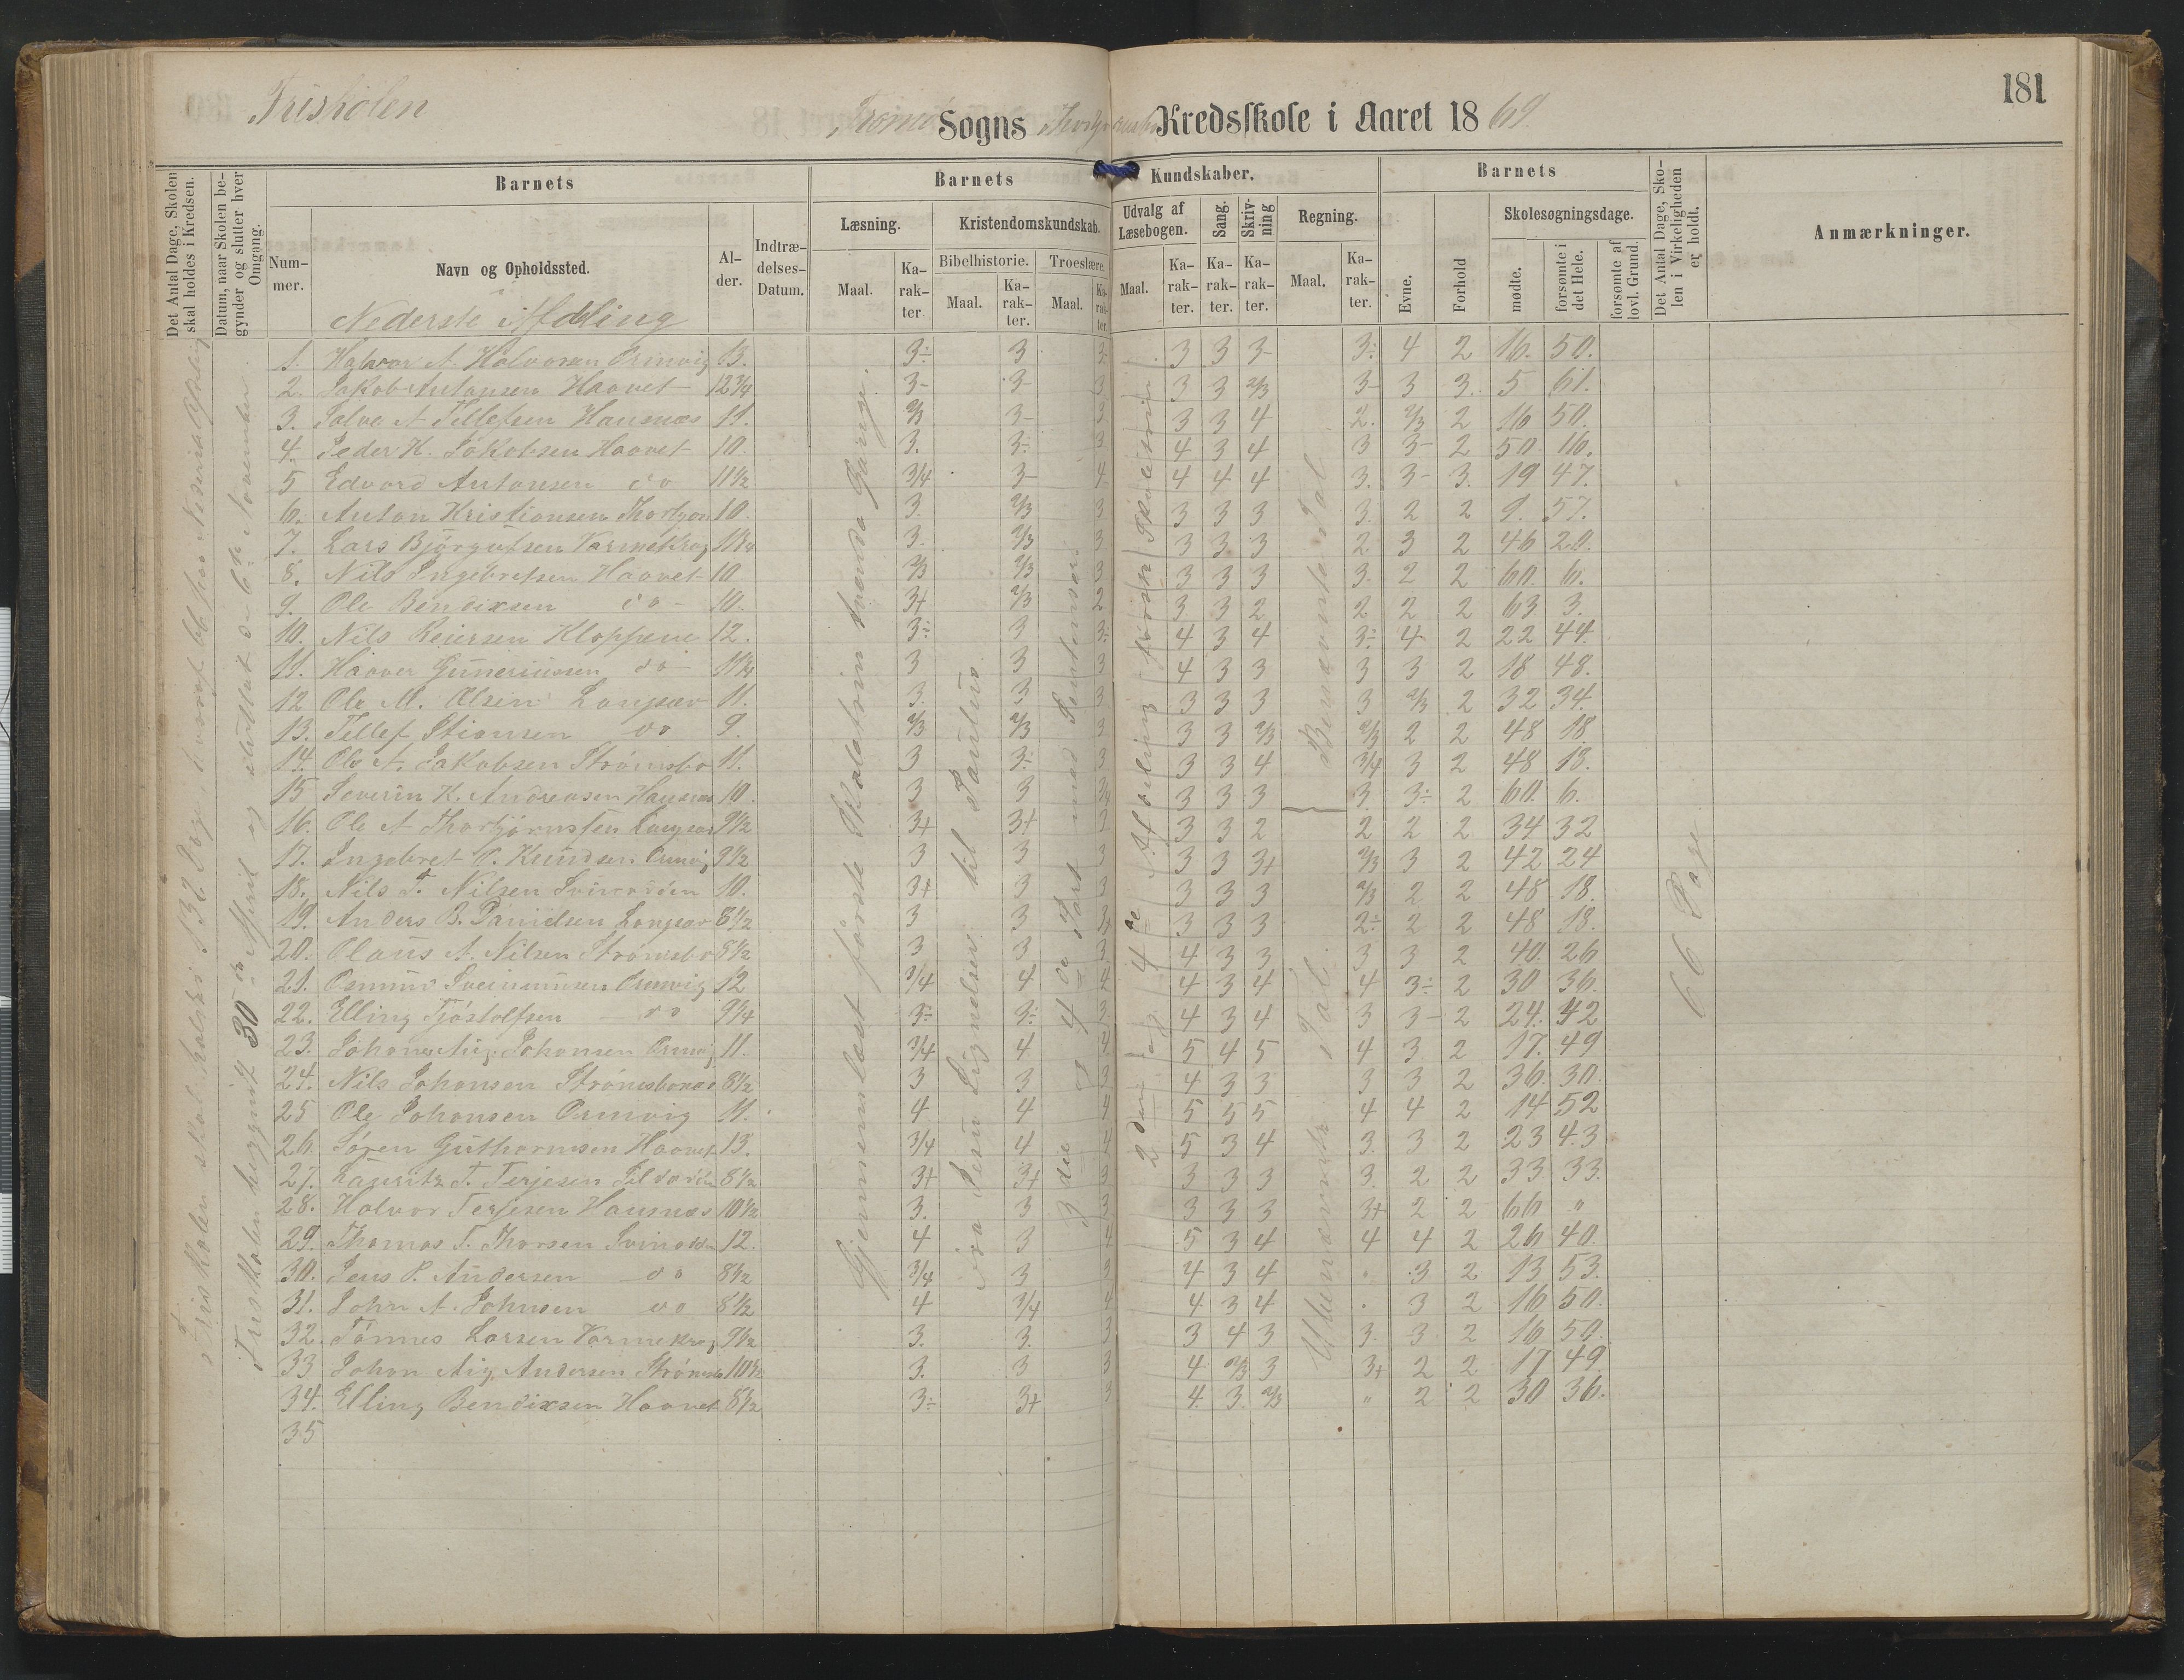 181
Friskolen
Tromø Sogns Kredsskole i Aaret 1869.
Det Antal Dage, Skolen skal holdes i Kredsen.
Datum, naar Skolen begynder og slutter hver Omgang.
Barnets
Barnets Kundskaber.
Barnets
Det Antal Dage, Skolen i Virkeligheden er holdt.
Anmærkninger.
Nummer.
Navn og Opholdssted.
Alder.
Indtrædelses-Datum.
Læsning.
Kristendomskundskab.
Udvalg af Læsebogen.
Sang.
Skrivning
Regning.
Evne.
Forhold
Skolesøgningsdage.
Maal.
Karakter
Bibelhistorie.
Troeslære.
Maal.
Karakter.
Maal.
Karakter.
Maal.
Karakter.
Karakter.
Karakter.
Maal.
Karakter.
mødte.
forsømte i det Hele.
forsømte af lovl. Grund.
Nederste Afdeling
1. Halvor A. Halvorsen Ormvig 13. 3÷ 3 3- 3 3 3- 3÷ 4 2 16. 50.
2. Jakob Antonsen Haavet 12 3/4 3- 3- 3 3 3 2/3 3- 3 3. 5 61.
3. Salve A Tellefsen Hausnæs 11. 2/3 3- 3 3 3 4 2. 2/3 2 16 50.
4. Peder K. Jakobsen Haavet 10. 3. 3÷ 3 4 3 4 3 3- 2 50 16.
5 Edvard Antonsen do 11 1/2 3/4 3- 4 4 4 4 3. 3- 3. 19 47.
6. Anton Kristiansen 10. 3. 2/3 3 3 3 3 3. 2 2 9. 57.
7. Lars Bjørgufsen Varmekrog 11 3/4 3. 2/3 3 3 3 3 2 3 2 46 20.
8. Nils Ingebretsen Haavet 10 2/3 2/3 3 3 3 3 3. 2 2 60. 6.
9. Ole Bendixsen do 10. 3+ 2/3 2 3 3 2 2 2 2 63 3.
10. Nils Reiersen Kloppene 12. 3÷ 3 3÷ 4 3 4 3÷ 4 2 22 44.
11. Haaver Guneriussen do 11 3/4 3 3 3 4 3 3 3 3 2 18 48.
12 Ole M. Olsen Longsæ 11. 3. 3 3 3 3 3 3 2/3 2 32 34.
13. Tellef Stiansen do 9. 2/3 2/3 3 3 3 2/3 2/3 2 2 48 18.
14. Ole A. Jakobsen Strømsbo 11. 3 3÷ 3 3 3 4 3/4 3 2 48 18.
15 Severin K. Andreasen Hausnæs 10. 3 3 3/4 3 3 3 3. 3÷ 2 60. 6.
16. Ole A Thorbjørnsen 9 1/2 3+ 3+ 2 3 3 2 2 2 2 34 32
17. Ingebret O. Knudsen Ormvig 9 1/2 3 3 3 3 3 3+ 2/3 3 2 42 24
18. Nils T. Nilsen Svinodden 10. 3+ 3 3 3 3 3 2/3 2 2 48 18.
19. Anders B. Danielsen Longsæ 8 1/2 3 3 3+ 3 3 3 2÷ 2 2 48 18.
20. Olaus A. Nilsen Strømsbo 8 1/2 3 3 3 4 3 3 3 3 2 40. 26
21. Osmund Ormvig 12 3/4 4 4 4 3 4 4 3÷ 2 30 36.
22. Elling Tjøstolfsen do 9 1/4 3÷ 3÷ 3 4 3 4 3 3- 2 24. 42
23. Johan Aug. Johansen Ormvig 11. 3/4 4 4 5 4 5 4 3 2 17. 49
24. Nils Johansen Strømsbonæs 8 1/2 3 3 3 4 3 3 3 3 2 36. 30.
25 Ole Johansen Ormvig 11. 4 4 4 5 5 5 4 4 2 14 52
26. Søren Guthormsen Haavet 13. 3/4 4 4 5 3 4 3. 3 2 23 43
27. Lauritz T. Terjesen 8 1/2 3+ 3+ 3 3 3 3 3. 2 2 33 33.
28. Halvor Terjesen Hausnæs 10 1/2 3. 3 3 3 3 3 3+ 2 2 66 "
29. Thomas T. Thorsen Svinodden 12. 4 3 4 5 3 4 4 4 2 26 40.
30. Jens P. Andersen do 8 1/2 3/4 3 3 4 3 4 " 3 2 13 53.
31. John A. Johnsen do 8 1/2 4 3/4 4 4 3 4 " 3 2 16 50.
32. Tønnes Larsen Varmekrog 9 1/2 3. 3. 3 3 4 3 3. 3 2 16 50.
33 Johan Aug. Andersen 10 1/2 3. 3 3 4 2/3 3 3+ 2 2 17 49.
34. Elling Bendixsen Haavet 8 1/2 3÷ 3+ 3 4. 3. 2/3 " 2 2 30 36.
35
Friskolen begyndt 30te April og sluttet d. 6te November.
Gjennemlæst første Skoletrin mange Gange.
Fra Jesu Lignelser til Paulus
3die og 4de Part med Pontoppidan
2den og 4de Afdeling første Skoletrin
Ubenævnte Tal.
Benævnte Tal
66 Dage